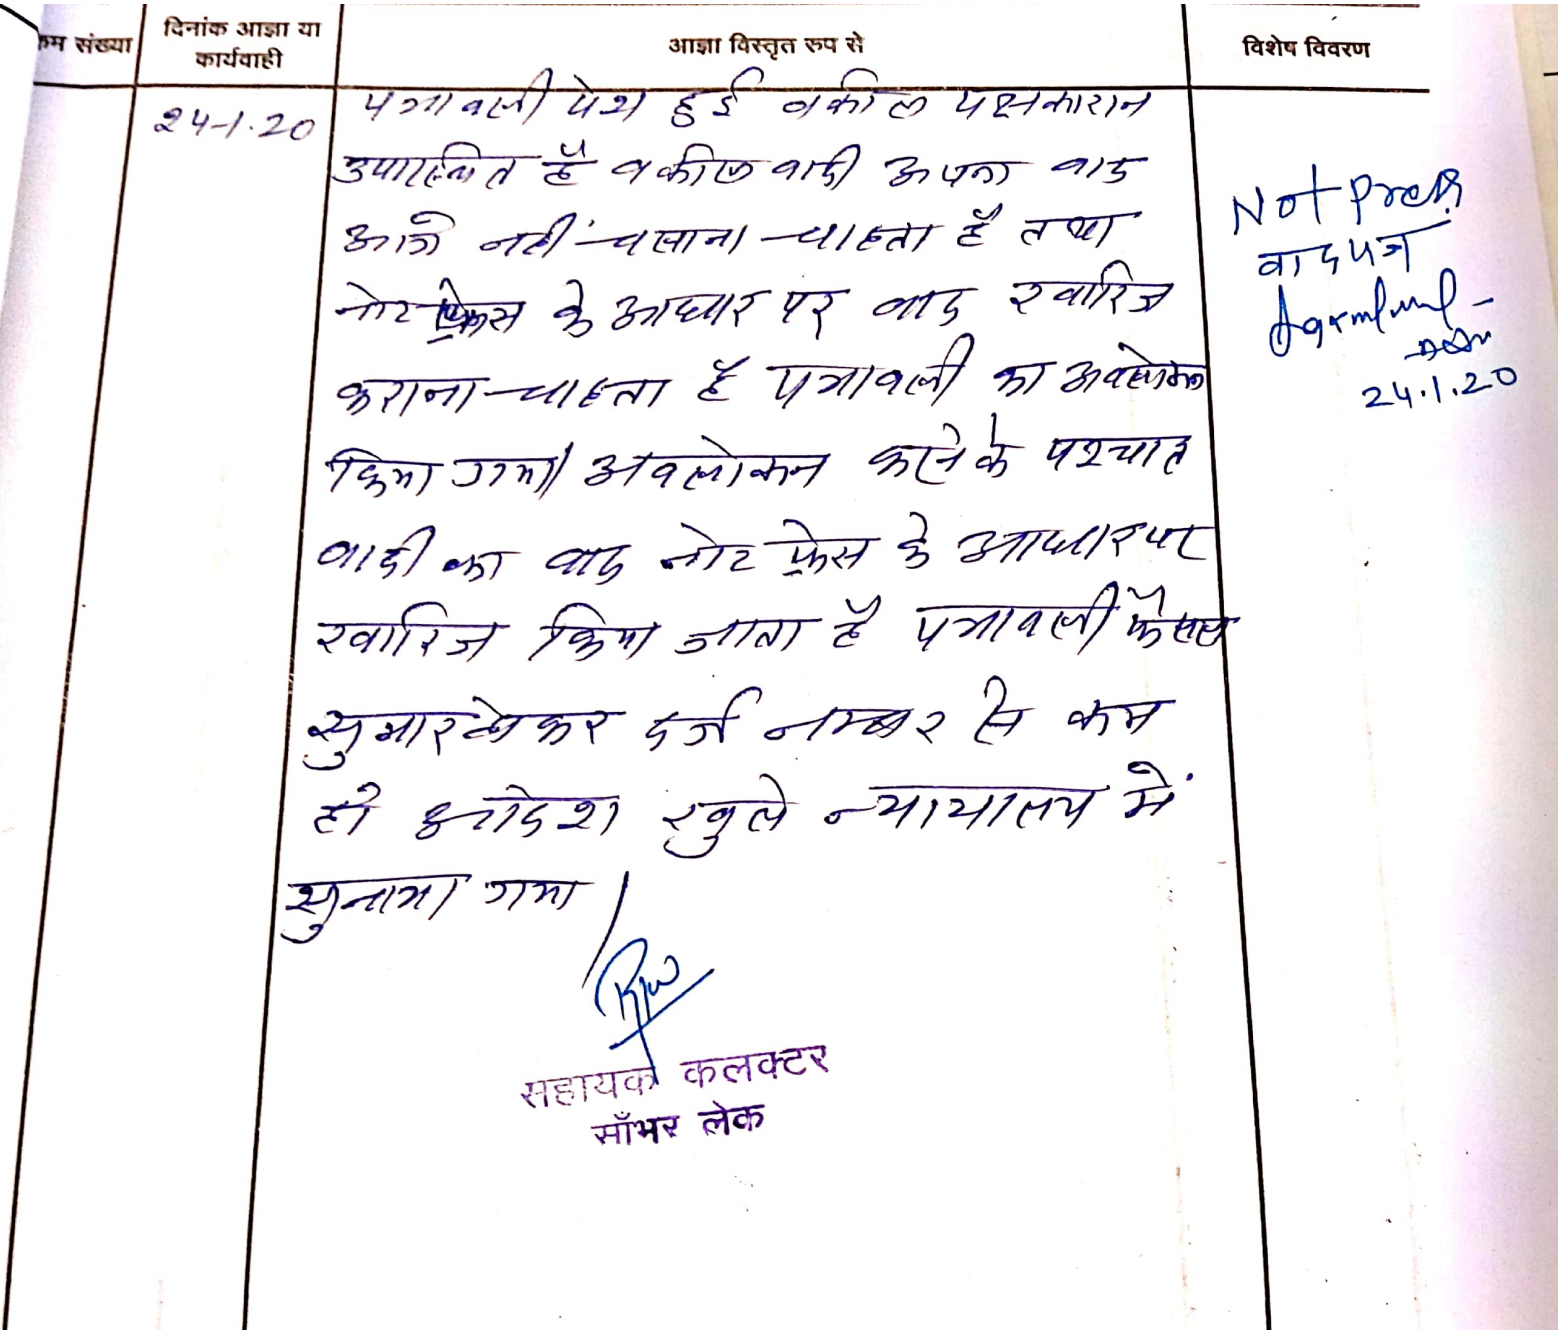 क्रम संख्या
दिनांक आज्ञा या
कार्यवाही
आज्ञा विस्तृत रुप से
विशेष विवरण
24-1-20
पत्रावली पेश हुई वकील पक्षकारान
उपस्थित है वकील वादी अपना वाद
आगे नहीं चलाना चाहता है तथा
नोट प्रेस के आधार पर वाद खारिज
कराना चाहता है पत्रावली का अवलोकन
किया गया। अवलोकन करने के पश्चात
वादी का वाद नोट प्रेस के आधार पर
खारिज किया जाता है पत्रावली फैसल
सुमार होकर दर्ज नम्बर से कम
हो आदेश खुले न्यायालय में
सुनाया गया
सहायक कलक्टर
साँभर लेक
Not Press
वादपत्र
24.1.20